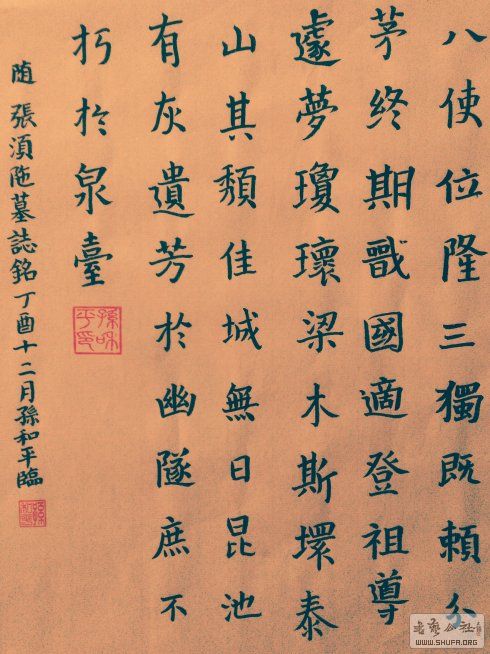 八使位隆三獨既賴分
茅終期國適登祖導
遽夢瓊瓌梁木斯壞泰
山其頽佳城無日昆池
有灰遺芳於幽隧庶不
朽於泉臺
孫和平印
随張湏陁墓誌銘丁酉十二月孫和平臨
书艺公社
WWW.SHUFA.ORG